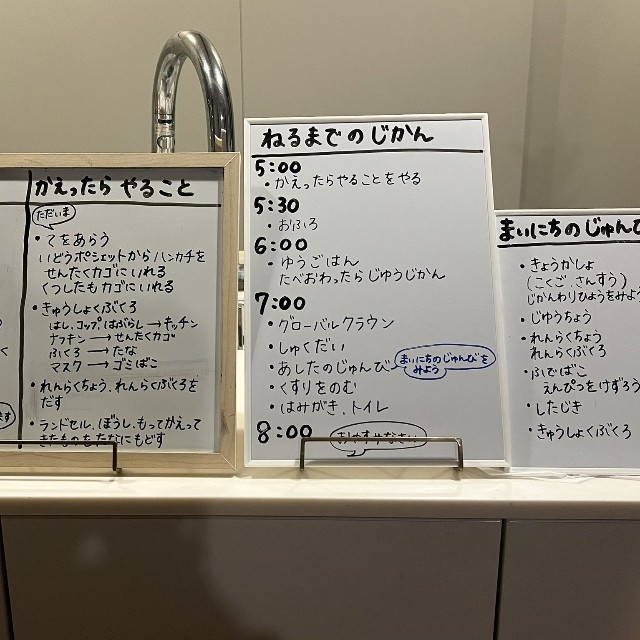 かえったら やること
ただいま
・てをあらう
いどうポシェットからハンカチを
せんたくカゴにいれる
くつしたもカゴにいれる
・きゅうしょくぶくろ
はし、コップ はぶらし→キッチン
ナフキン→せんたくカゴ
ふくろ→たな
マスク→ゴミばこ
・れんらくちょう、れんらくぶくろを
だす
・ランドセル、ぼうし、もってかえって
きたものもたなにもどす
ねるまでのじかん
5:00
・かえったらやることをやる
5:30
・おふろ
6:00
・ゆうごはん
たべおわったらじゆうじかん
7:00
・グローバルクラウン
・しゅくだい
・あしたのじゅんび
まいにちのじゅんびを
みよう
・くすりをのむ
・はみがき、トイレ
8:00
おやすみなさい
まいにちのじゅんび
・きょうかしょ
(こくご、さんすう)
じかんわりひょうをみよ
・じゆうちょう
・れんらくちょう
れんらくぶくろ
・ふでばこ
えんぴつをけずろう
・したじき
・きゅうしょくぶくろ